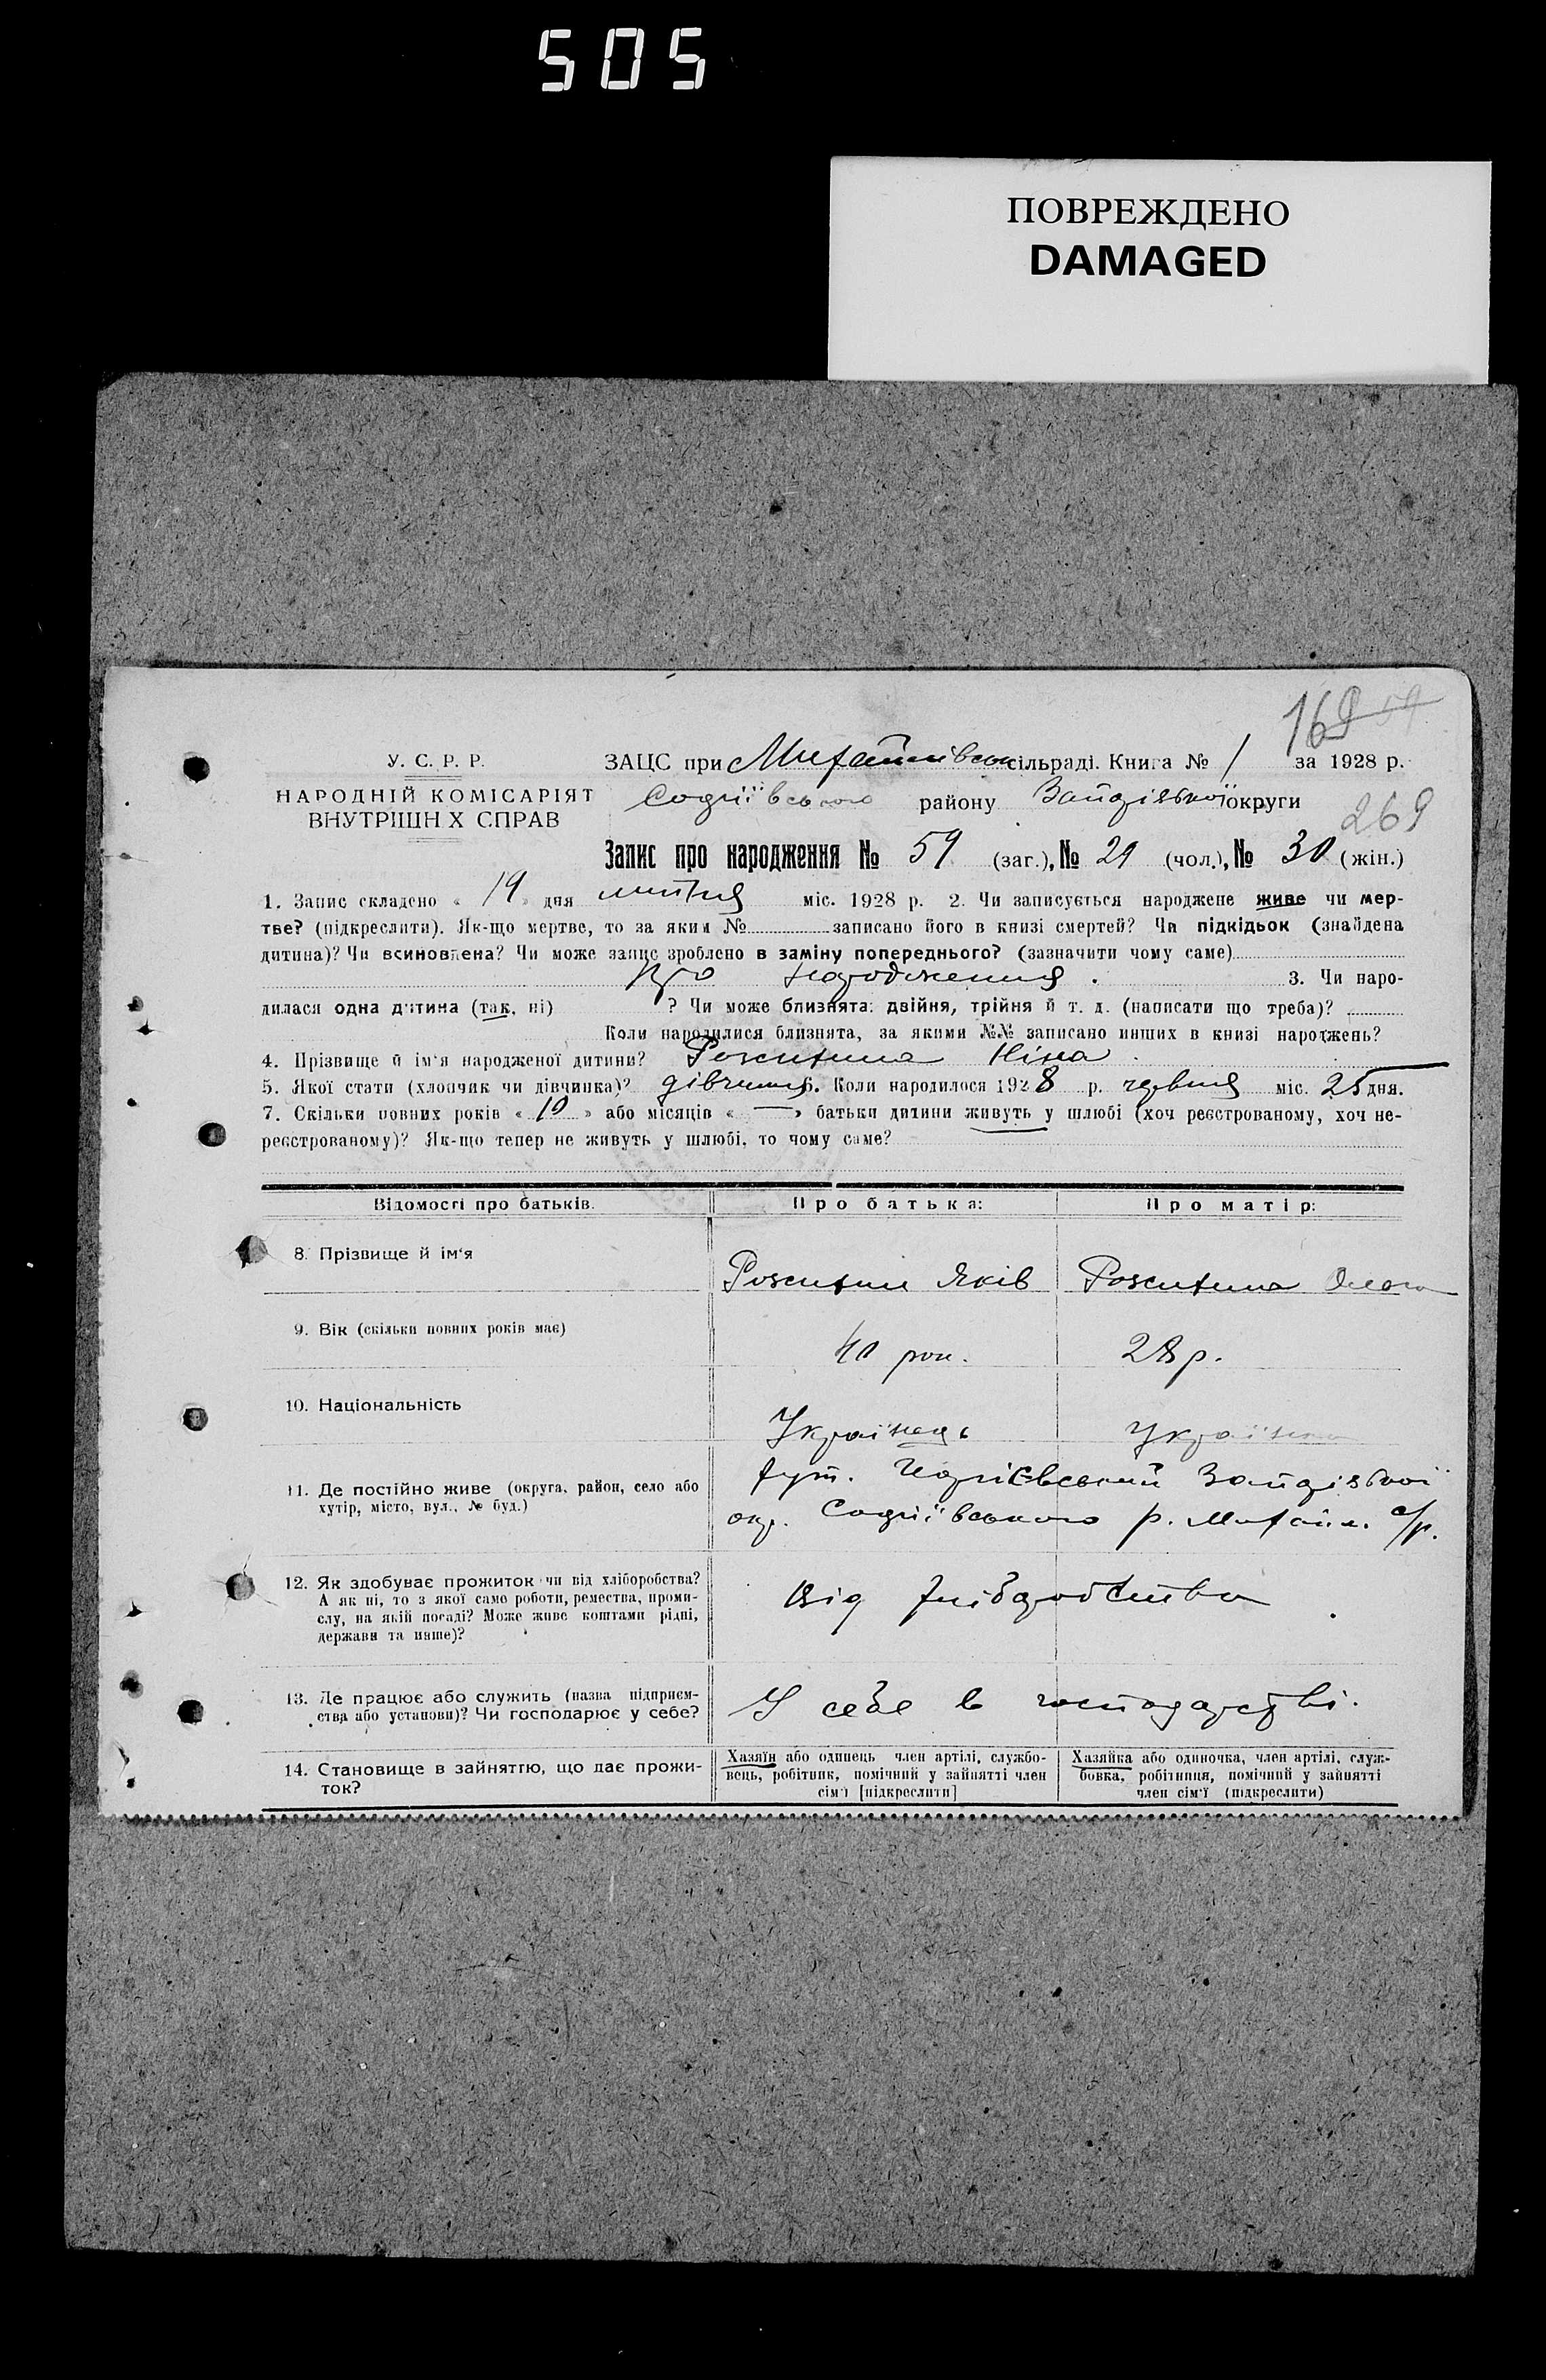 505
ПОВРЕЖДЕНО
DAMAGED
169
У. С. Р. Р.
НАРОДНІЙ КОМІСАРІЯТ
ВНУТРІШН Х СПРАВ
ЗАЦС при Михайлівськ сільраді. Книга № 1 за 1928 р.
Софіївського району Запорізької округи
269
Запис про народження № 59 (заг.), № 29 (чол.), № 30 (жін.)
1. Запис складено « 19 » дня липня міс. 1928 р. 2. Чи записується народжене живе чи мер-
тве? (підкреслити). Як-що мертве, то за яким № записано його в книзі смертей? Чи підкідьок (знайдена
дитина)? Чи всиновлена? Чи може запис зроблено в заміну попереднього? (зазначити чому саме)
про народження. 3. Чи наро-
дилася одна дитина (так, ні) ? Чи може близнята: двійня, трійня й т. д. (написати що треба)?
Коли народилися близнята, за якими №№ записано инших в книзі народжень?
4. Прізвище й ім'я народженої дитини? Ніна
5. Якої стати (хлопчик чи дівчинка)? дівчина 6. Коли народилося 1928 р. червня міс. 25 дня.
7. Скільки повних років « 10 » або місяців « — » батьки дитини живуть у шлюбі (хоч реєстрованому, хоч не-
реєстрованому)? Як-що тепер не живуть у шлюбі, то чому саме?
Відомості про батьків. Про батька: Про матір:
8. Прізвище й ім'я
Яків
9. Вік (скільки повних років має)
40 рок. 28 р.
10. Національність
Українець Українка
11. Де постійно живе (округа, район, село або
хутір, місто, вул., № буд.)
хут. Запорізької
окр. Софіївського р. Михайл. с/р.
12. Як здобуває прожиток чи від хліборобства?
А як ні, то з якої само роботи, ремества, проми-
слу, на якій посаді? Може живе коштами рідні,
держави та инше)?
Від хліборобства
13. Де працює або служить (назва підприєм-
ства або установи)? Чи господарює у себе?
У себе в господарстві.
14. Становище в зайняттю, що дає прожи-
ток?
Хазяїн або одинець член артілі, службо-
вець, робітник, помічний у зайнятті член
сім'ї [підкреслити]
Хазяйка або одиночка, член артілі, служ-
бовка, робітниця, помічний у зайнятті
член сім'ї (підкреслити)